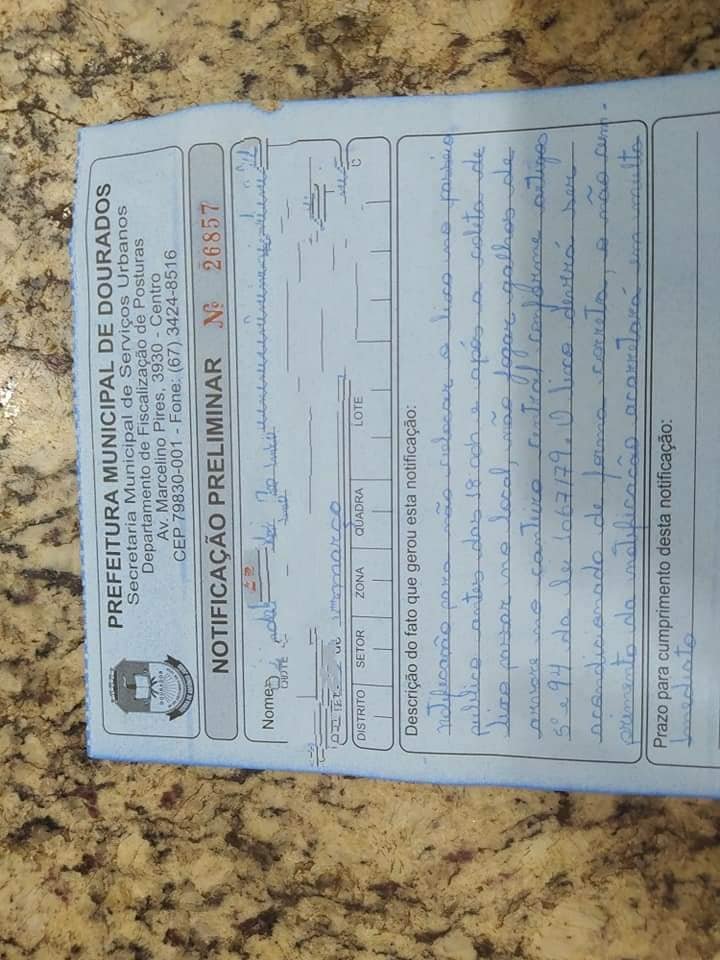 PREFEITURA MUNICIPAL DE DOURADOS
Secretaria Municipal de Serviços Urbanos
Departamento de Fiscalização de Posturas
Av. Marcelino Pires, 3930 - Centro
CEP 79830-001 - Fone: (67) 3424-8516
NOTIFICAÇÃO PRELIMINAR Nº 26857
Nome:
DISTRITO SETOR ZONA QUADRA LOTE
Descrição do fato que gerou esta notificação:
notificação para não colocar o lixo no passeio
público antes das 18:00h e após a coleta de
lixo passar no local, não jogar galhos de
arvore no canteiro central conforme artigos
5º e 94 da lei 1067/79. O lixo deverá ser
acondicionado de forma correta, o não cum-
primento da notificação acarretará em multa
Prazo para cumprimento desta notificação:
Imediato